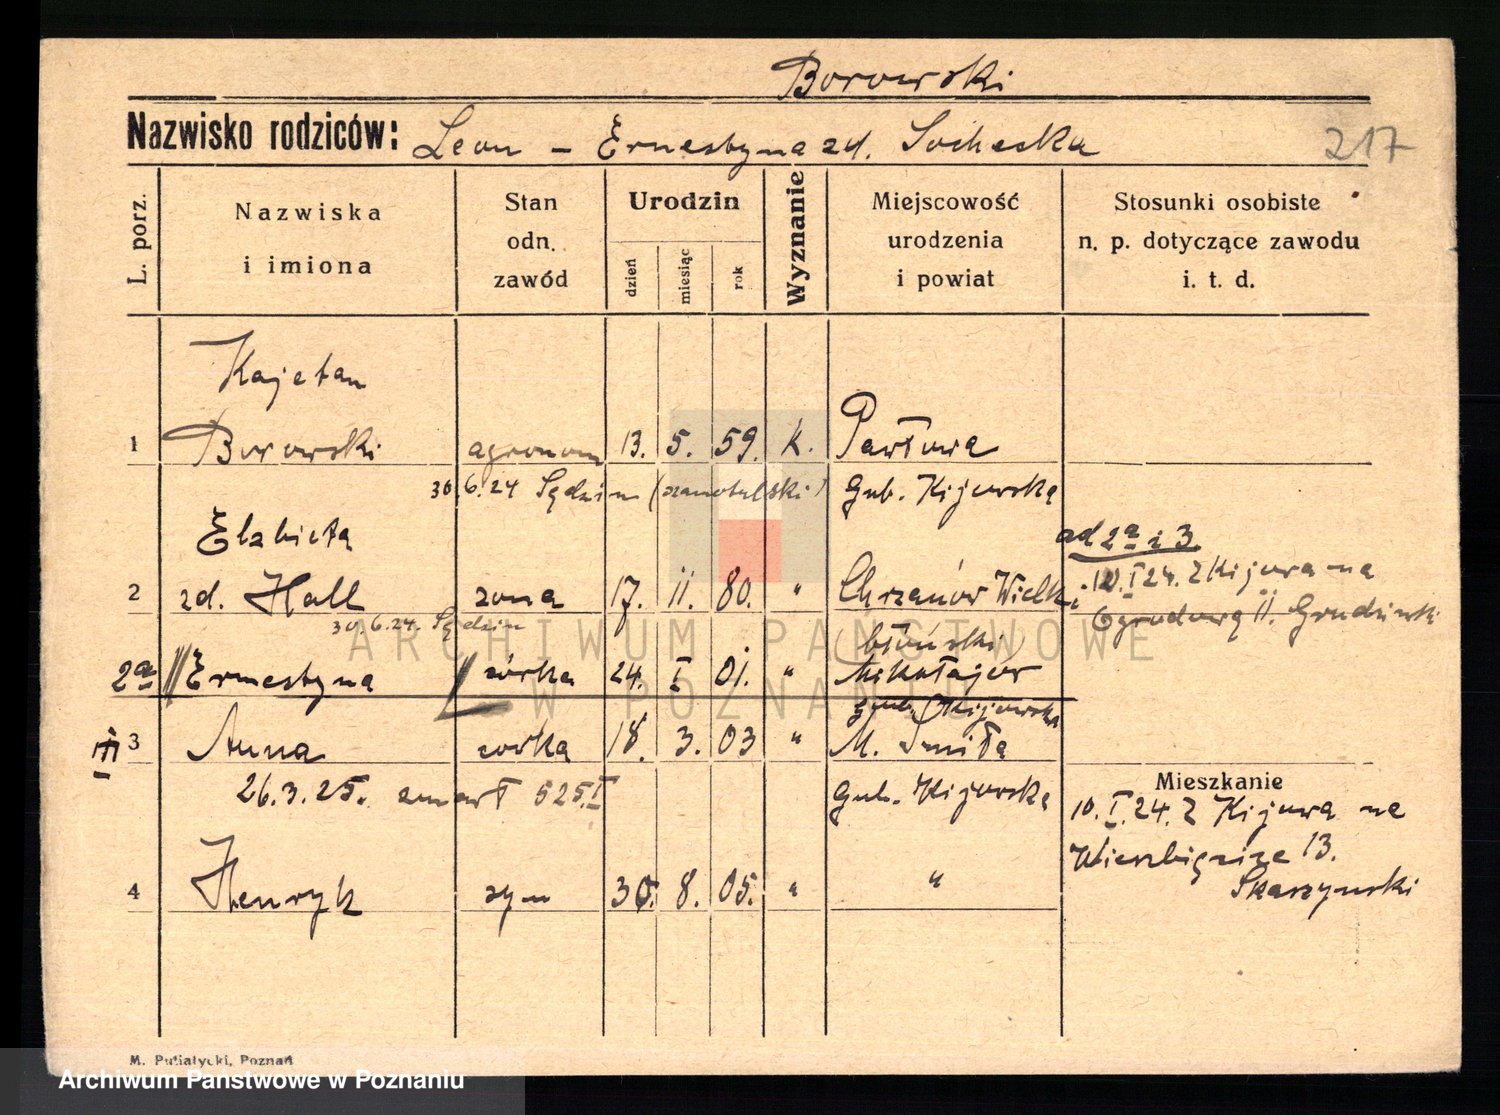 Borowski
Nazwisko rodziców: Leon – Ernestyna zd. Socheska 217
L. porz.
Nazwiska
i imiona
Stan
odn.
zawód
Urodzin
dzień
miesiąc
rok
Wyznanie
Miejscowość
urodzenia
i powiat
Stosunki osobiste
n. p. dotyczące zawodu
i. t. d.
Kajetan
1 Borowski agronom 13. 5. 59. k. Pawłowa
30.6.24 Sędzin (szamotulski) Gub. Kijowska
Elżbieta
ad 2a i 3.
2 zd. Hall żona 17. 11. 80. " Chrzanów Wielki
10.I 24. z Kijowa na
30.6.24. Sędzin
Ogrodową 11. Grudziński
(błoński)
2a Ernestyna córka 24. I 01. " Mikołajów
gub. Kijowska
III 3 Anna córka 18. 3. 03 " M. Smiła
26.3.25. zmarł 525.I Gub. Kijowska
Mieszkanie
10.I.24. z Kijowa na
Wierzbięcice 13.
Skarzynski
4 Henryk syn 30. 8. 05. " "
M. Putiatycki, Poznań
ARCHIWUM PAŃSTWOWE
W POZNANIU
Archiwum Państwowe w Poznaniu